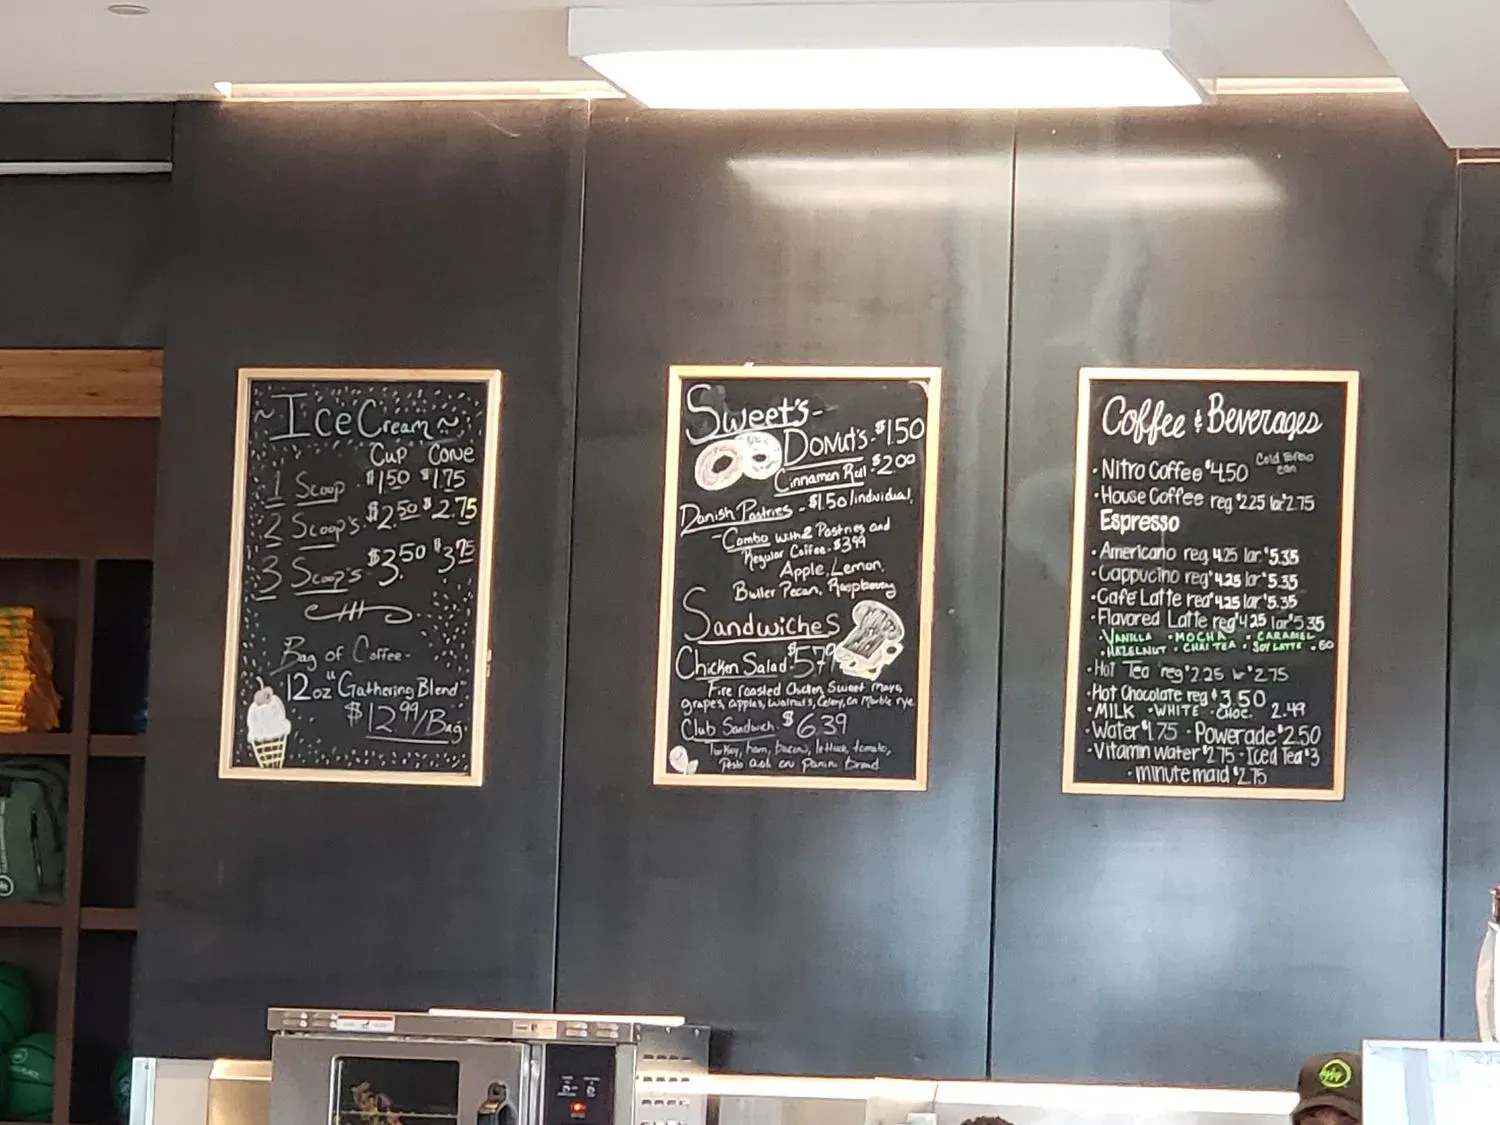 ~ Ice Cream ~
Cup Cone
1 Scoop $1.50 $1.75
2 Scoop's $2.50 $2.75
3 Scoop's $3.50 $3.75
Bag of Coffee-
12oz "Gathering Blend"
$12.99/Bag
Sweet's-
Donut's-$1.50
Cinnamon Roll-$2.00
Danish Pastries - $1.50/individual,
-Combo with 2 Pastries and
Regular Coffee-$3.99
Apple, Lemon,
Butter Pecan, Raspberry
Sandwiches
Chicken Salad $5.79
Fire roasted Chicken, Sweet mayo,
grapes, apples, walnuts, Celery, on Marble rye
Club Sandwich $6.39
Turkey, ham, bacon, lettuce, tomato,
Pesto aioli on panini bread
Coffee & Beverages
·Nitro Coffee $4.50 Cold Brew
can
·House Coffee reg $2.25 lar $2.75
Espresso
·Americano reg 4.25 lar $5.35
·Cappucino reg $4.25 lar $5.35
·Café Latte reg $4.25 lar $5.35
·Flavored Latte reg $4.25 lar $5.35
·VANILLA ·MOCHA ·CARAMEL
·HAZELNUT ·CHAI TEA ·SOY LATTE .60
·Hot Tea reg $2.25 lr $2.75
·Hot Chocolate reg $3.50
·MILK ·WHITE ·Choc. 2.49
·Water $1.75 ·Powerade $2.50
·Vitamin water $2.75 ·Iced Tea $3
·minute maid $2.75